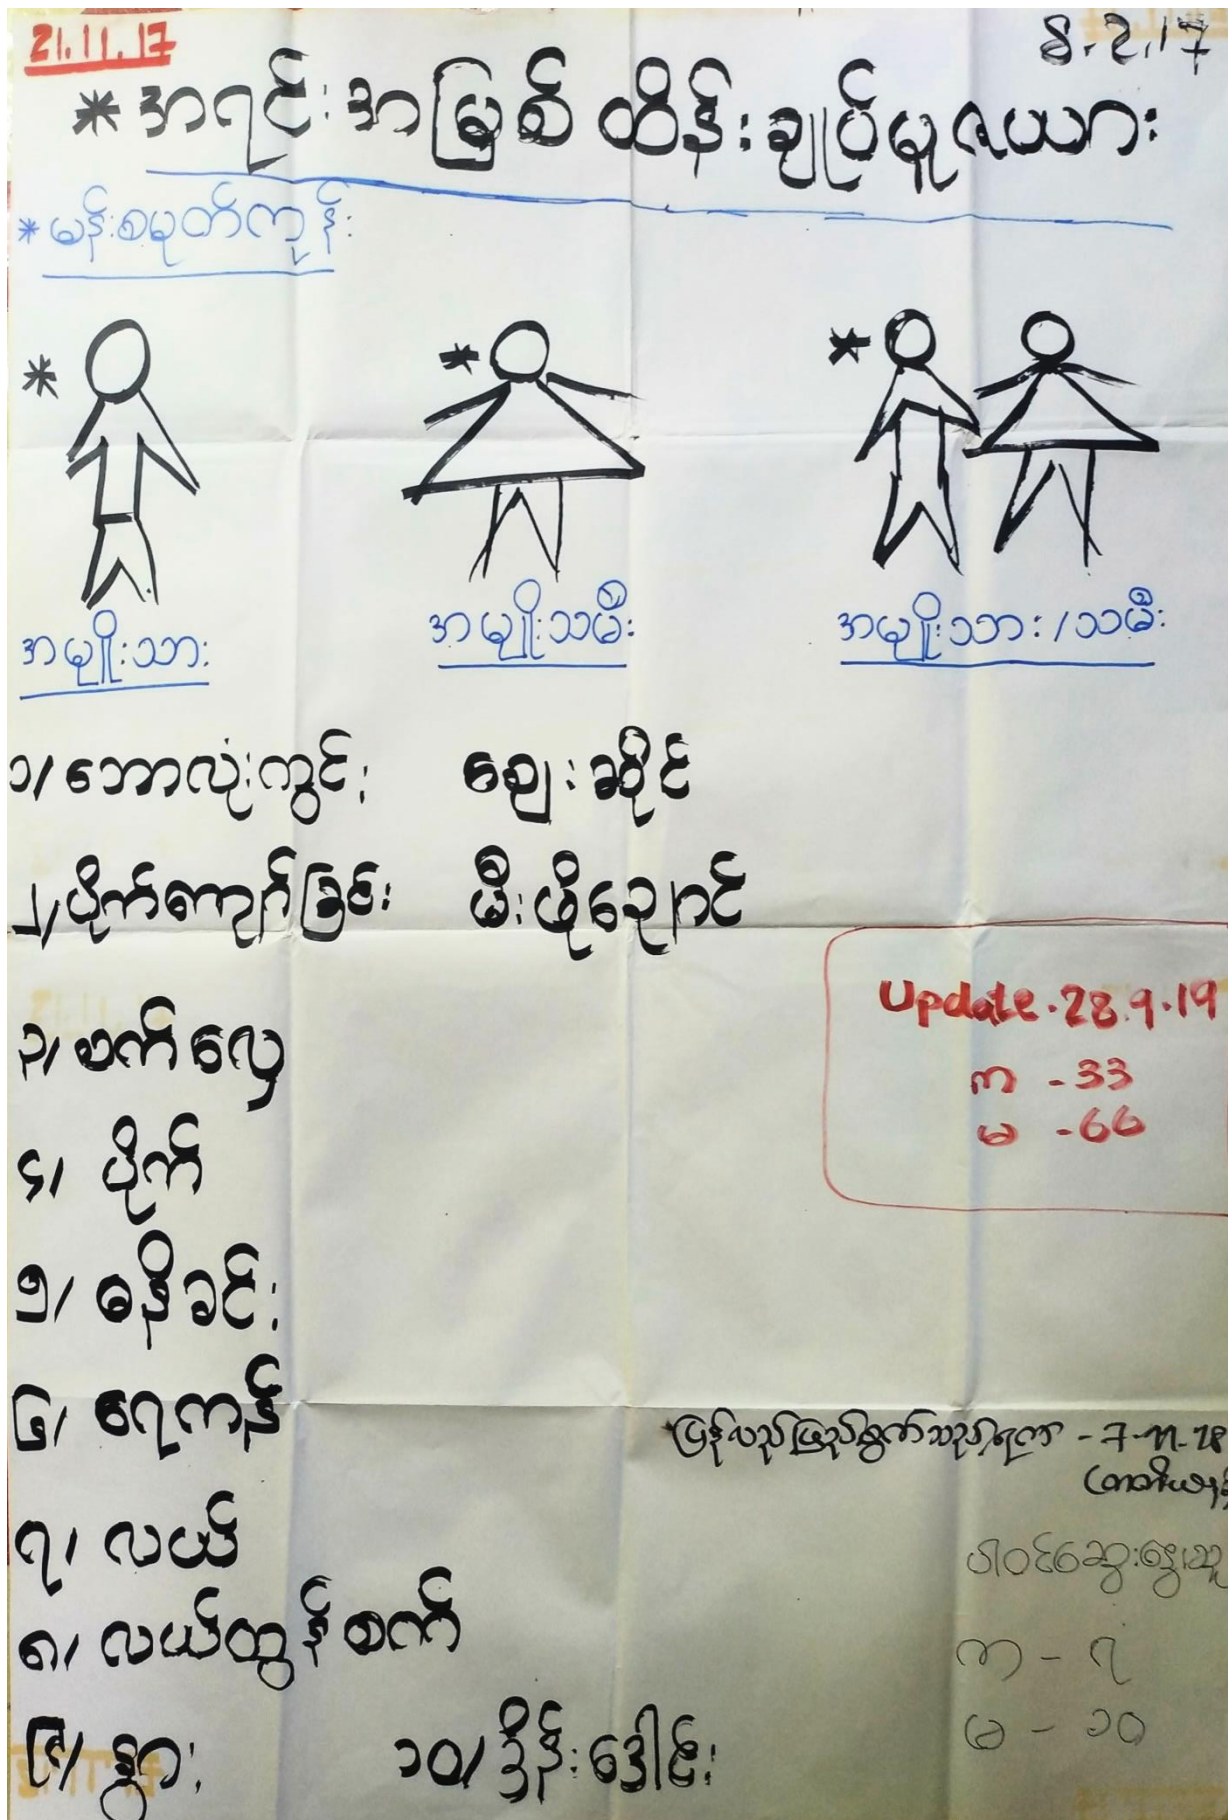 21.11.17
8.2.17
* အရင်းအမြစ် ထိန်းချုပ်မှုဇယား
* မန်းစမုတ်ကုန်း
* * *
အမျိုးသား အမျိုးသမီး အမျိုးသား/သမီး
၁/ ဘောလုံးကွင်း ဈေးဆိုင်
၂/ ပိုက်ကျော်ခြင်း မီးဖိုချောင်
၃/ စက်လှေ
၄/ ပိုက်
၅/ ဓနိခင်း
၆/ ရေကန်
၇/ လယ်
၈/ လယ်ထွန်စက်
၉/ နွား ၁၀/ ဒိုန်းဒေါင်း
Update.28.9.19
က - 33
မ - 66
ပြန်လည်ဖြည့်စွက်သည့်ရက် - 7-11-18
ပါဝင်ဆွေးနွေးသူ
က - ၇
မ - ၁၀